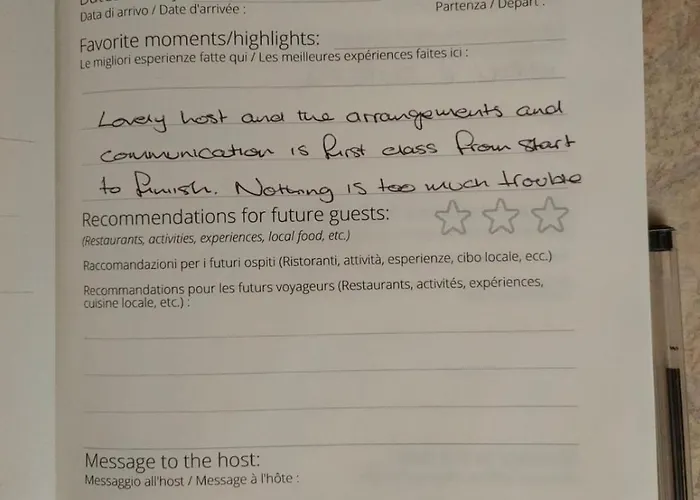 Data di arrivo / Date d'arrivée :
Partenza / Départ :
Favorite moments/highlights:
Le migliori esperienze fatte qui / Les meilleures expériences faites ici :
Lovely host and the arrangements and
communication is first class from start
to finish. Nothing is too much trouble
Recommendations for future guests:
(Restaurants, activities, experiences, local food, etc.)
Raccomandazioni per i futuri ospiti (Ristoranti, attività, esperienze, cibo locale, ecc.)
Recommandations pour les futurs voyageurs (Restaurants, activités, expériences,
cuisine locale, etc.) :
Message to the host:
Messaggio all'host / Message à l'hôte :